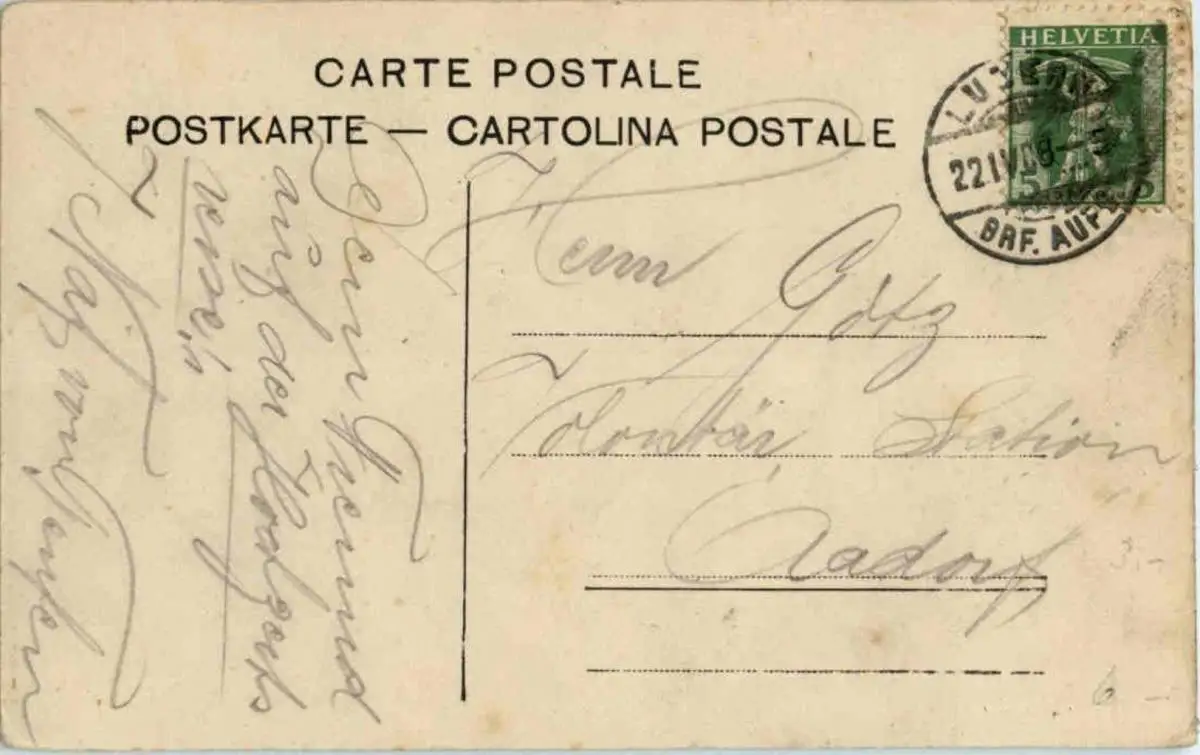 CARTE POSTALE
POSTKARTE — CARTOLINA POSTALE
HELVETIA
5 5
LUZERN
22.IV.08 – 5
BRF. AUFG.
Herrn Götz
Volontär Station
Aadorf
3.-
6 -
Dein Freund
auf der Hochzeits
reise,
von